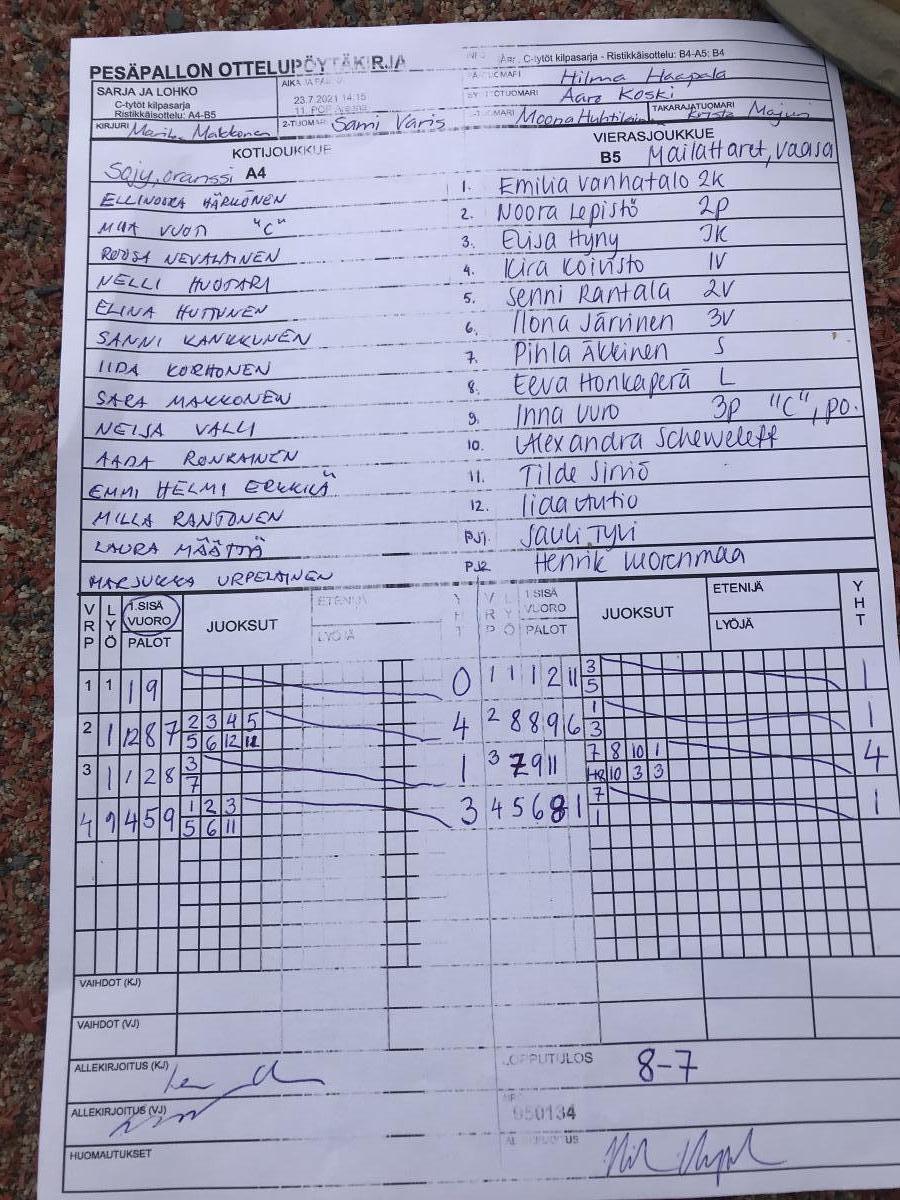 PESÄPALLON OTTELUPÖYTÄKIRJA
C-tytöt kilpasarja - Ristikkäisottelu: B4-A5: B4
SARJA JA LOHKO
C-tytöt kilpasarja
Ristikkäisottelu: A4-B5
23.7.2021 14:15
Hilma Haapala
Aaro Koski
KIRJURI Marika Makkonen
2-TUOMARI Sami Varis
Moona
TAKARAJATUOMARI
KOTIJOUKKUE
VIERASJOUKKUE
Sojy, oranssi A4
B5 Mailattaret, Vaasa
ELLINOORA HÄRKÖNEN
1. Emilia Vanhatalo 2K
MIIA VUORI "C"
2. Noora Lepistö 2P
ROOSA NEVALAINEN
3. Elisa Hyny
NELLI HUOTARI
4. Kira Koivisto 1V
ELINA HUTTUNEN
5. Senni Rantala 2V
SANNI KANKKUNEN
6. Ilona Järvinen 3V
IIDA KORHONEN
7. Pihla Äkkinen S
SARA MAKKONEN
8. Eeva Honkaperä L
NEIJA VALLI
9. Inna Vuro 3P "C", po.
AADA RONKAINEN
10. Alexandra Scheweleff
EMMI HELMI ERKKILÄ
11. Tilde Sirviö
MILLA RANTONEN
12. Iida Autio
LAURA MÄÄTTÄ
PJ1. Jauli Tyli
MARJUKKA URPELAINEN
PJ2 Henrik
VRP LYÖ 1.SISÄ VUORO PALOT JUOKSUT ETENIJÄ LYÖJÄ YHT
VRP LYÖ 1.SISÄ VUORO PALOT JUOKSUT ETENIJÄ LYÖJÄ YHT
1 1 1 9 0
1 1 1 2 11 3 1
5
2 1 12 8 7 2 3 4 5 4
5 6 12 12
2 8 8 9 6 1 1
3
3 1 1 2 8 3 1
7
3 7 9 11 7 8 10 1 4
10 3 3
4 9 4 5 9 1 2 3 3
5 6 11
4 5 6 8 1 7 1
1
VAIHDOT (KJ)
VAIHDOT (VJ)
ALLEKIRJOITUS (KJ)
LOPPUTULOS 8-7
ALLEKIRJOITUS (VJ)
950134
HUOMAUTUKSET